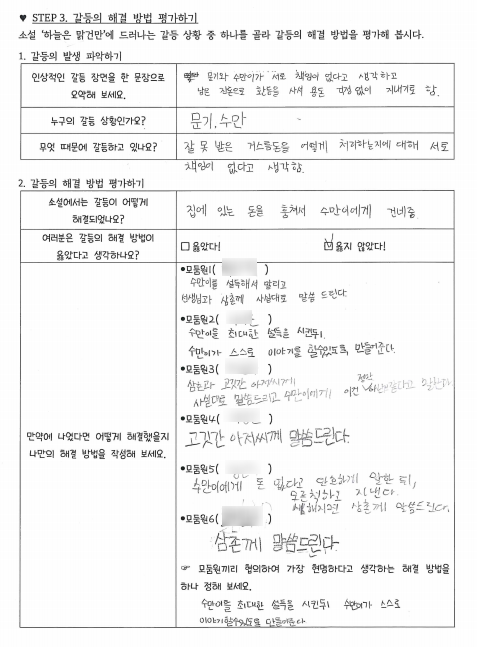 ♥ STEP 3. 갈등의 해결 방법 평가하기
소설 ‘하늘은 맑건만’에 드러나는 갈등 상황 중 하나를 골라 갈등의 해결 방법을 평가해 봅시다.
1. 갈등의 발생 파악하기
인상적인 갈등 장면을 한 문장으로
요약해 보세요.
문기와 수만이가 서로 책임이 없다고 생각하고
남은 돈으로 환등을 사서 용돈 걱정 없이 지내기로 함.
누구의 갈등 상황인가요?
문기, 수만
무엇 때문에 갈등하고 있나요?
잘 못 받은 거스름돈을 어떻게 처리하는지에 대해 서로
책임이 없다고 생각함.
2. 갈등의 해결 방법 평가하기
소설에서는 갈등이 어떻게
해결되었나요?
집에 있는 돈을 훔쳐서 수만이에게 건네줌
여러분은 갈등의 해결 방법이
옳았다고 생각하나요?
□ 옳았다!
☑ 옳지 않았다!
만약에 나였다면 어떻게 해결했을지
나만의 해결 방법을 작성해 보세요.
•모둠원1( )
수만이를 설득해서 말리고
선생님과 삼촌께 사실대로 말씀 드린다
•모둠원2( )
수만이를 최대한 설득을 시킨뒤,
수만이가 스스로 이야기를 할수있도록, 만들어준다.
•모둠원3( )
삼촌과 고깃간 아저씨에게
사실대로 말씀드리고 수만이에게 이건 정말
•모둠원4( )
고깃간 아저씨께 말씀드린다.
•모둠원5( )
수만이에게 돈 없다고 단호하게 말한 뒤,
모른척하고 지낸다.
삼촌께 말씀드린다.
•모둠원6( )
삼촌께 말씀드린다.
☞ 모둠원끼리 협의하여 가장 현명하다고 생각하는 해결 방법을
하나 정해 보세요.
수만이를 최대한 설득을 시킨뒤 수만이가 스스로
이야기할수있도록 만들어준다